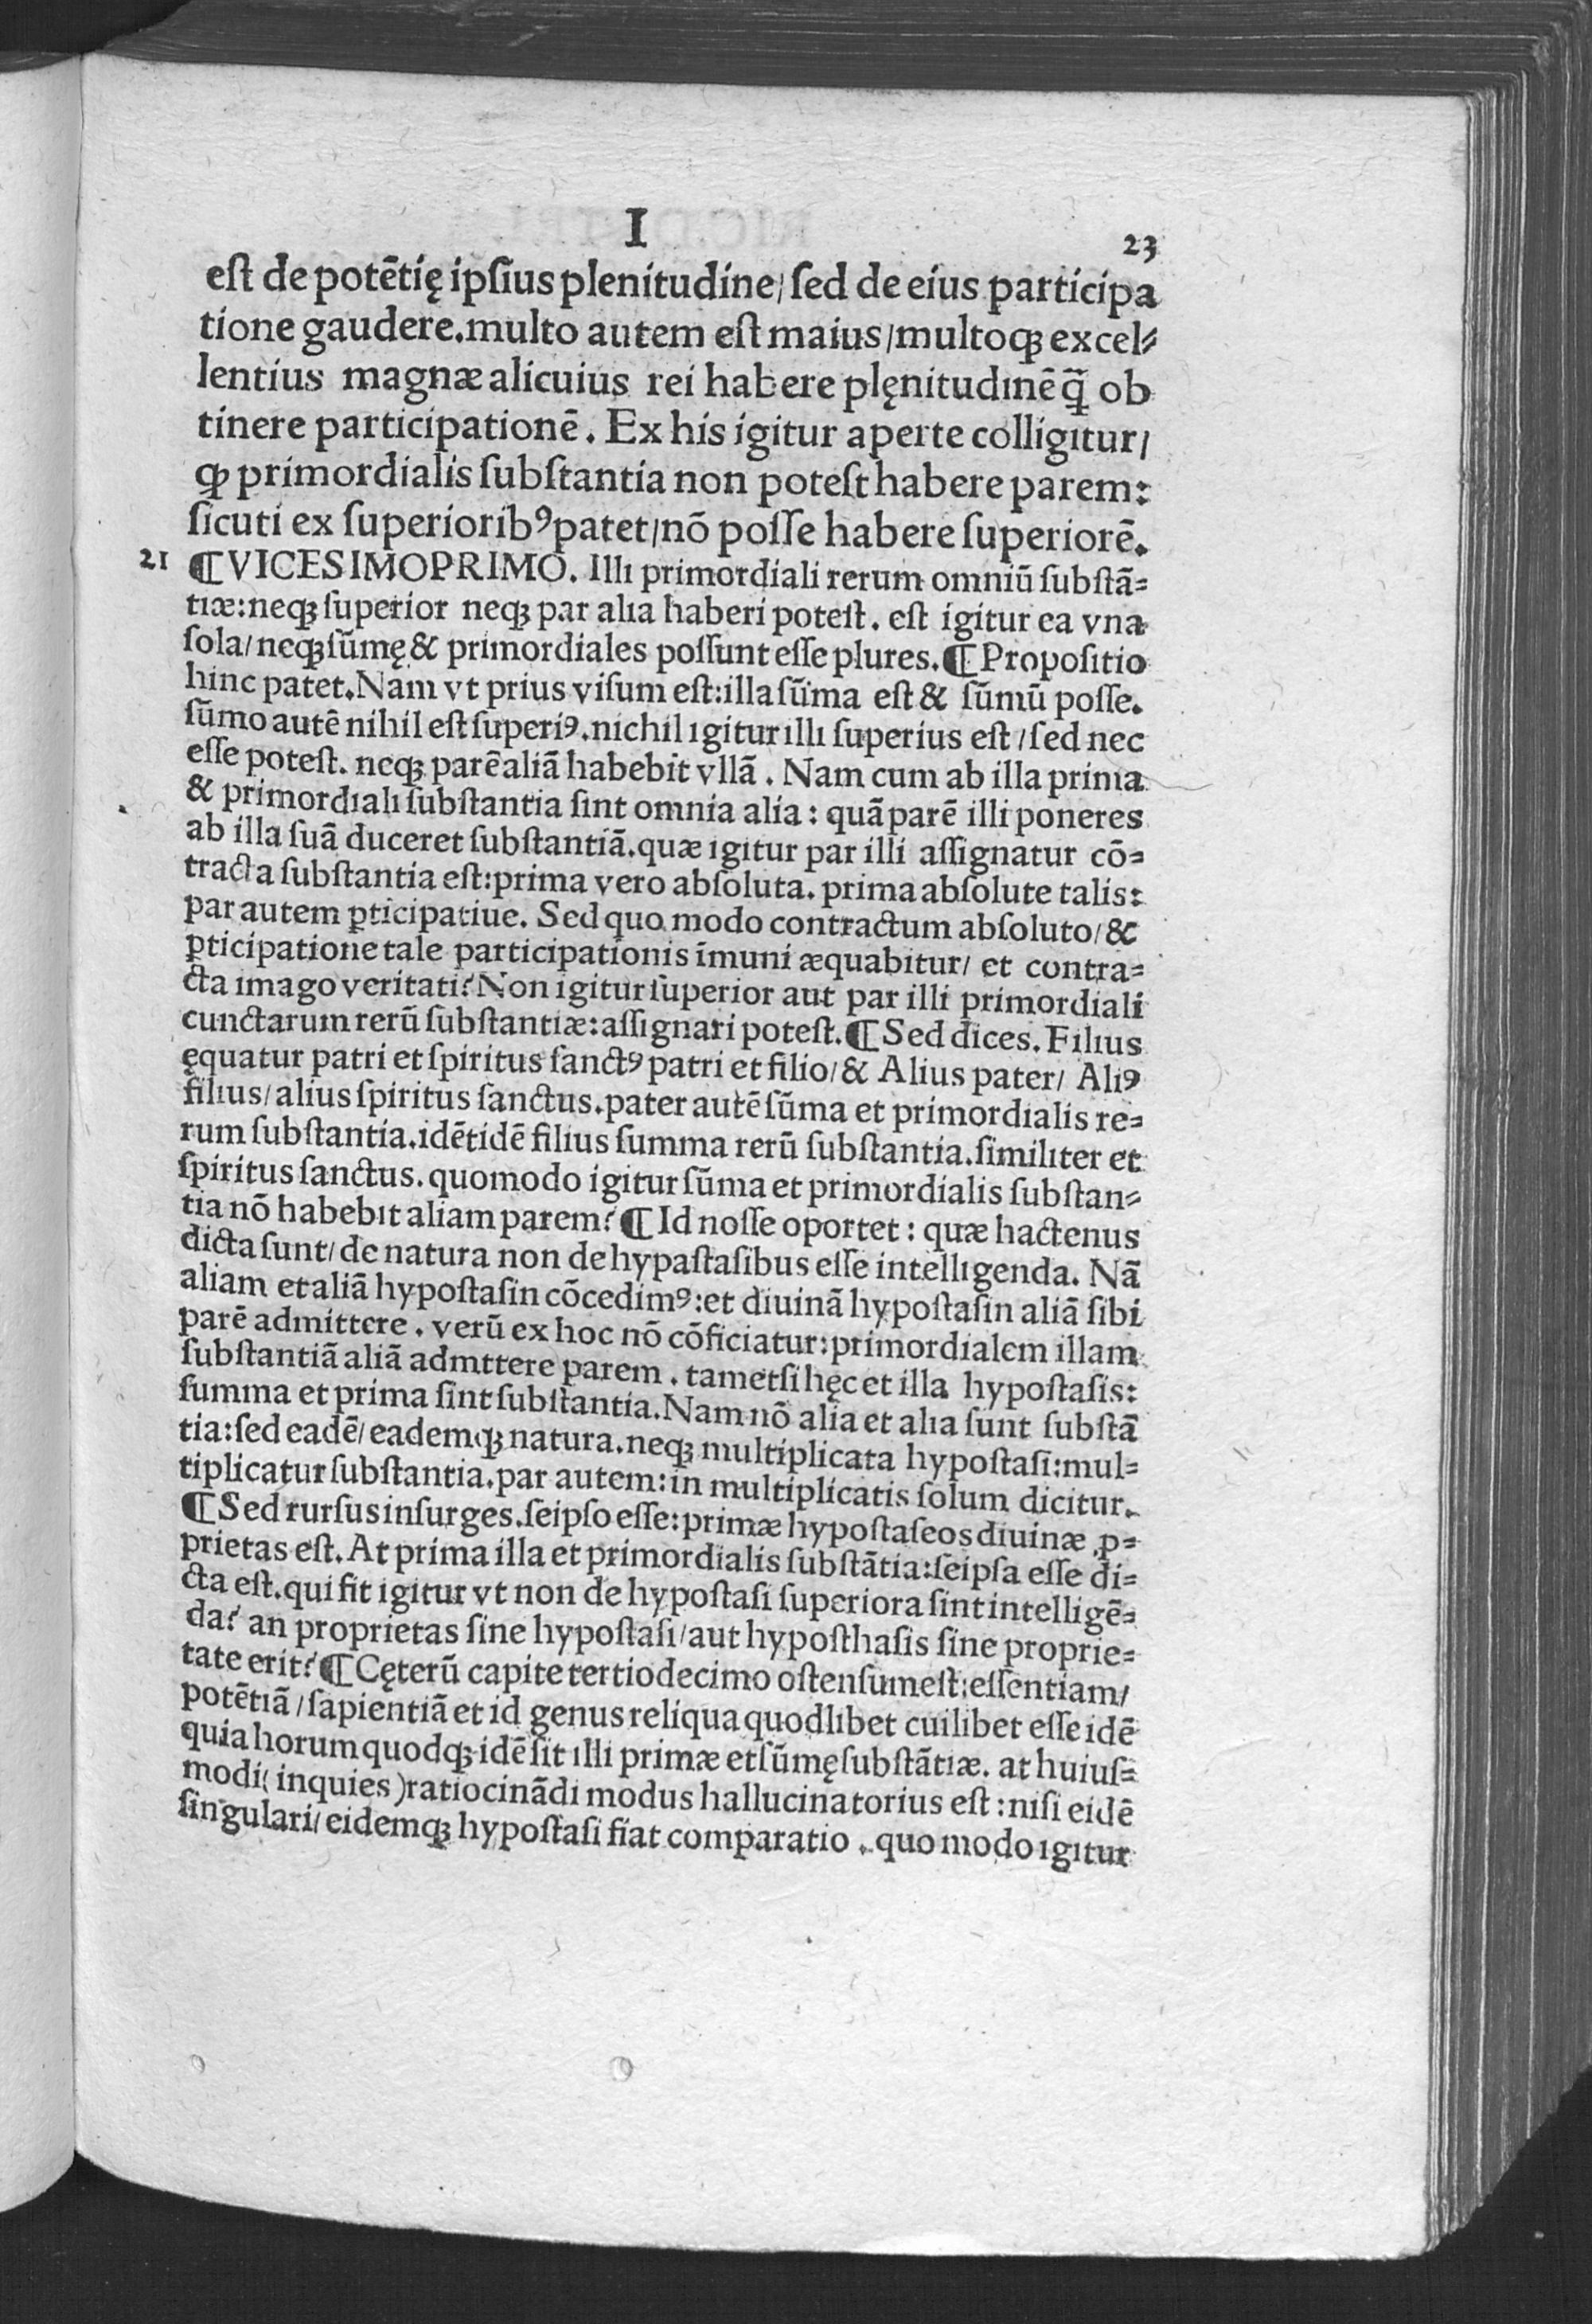 I
23
est de potētię ipſius plenitudine/ ſed de eius participa
tione gaudere.multo autem eſt maius/multoqꝫ excel⸗
lentius magnæ alicuius rei habere plęnitudinē q̄̃ ob
tinere participationē. Ex his igitur aperte colligitur/
ꝙ primordialis ſubſtantia non poteſt habere parem:
ſicuti ex ſuperioribꝰ patet/nō poſſe habere ſuperiorē.
21 ¶VICESIMOPRIMO. Illi primordiali rerum omniū ſubſtā⸗
tiæ:neqꝫ ſuperior neqꝫ par alia haberi poteſt. est igitur ea vna
ſola/neqꝫ ſūmę & primordiales poſſunt eſſe plures.¶ Propoſitio
hinc patet.Nam vt prius viſum eſt:illa ſūma est & ſūmū poſſe.
ſūmo autē nihil eſt ſuperiꝰ.nichil igitur illi ſuperius eſt/ſed nec
eſſe poteſt. neqꝫ parē aliā habebit vllā. Nam cum ab illa prima
& primordiali ſubſtantia ſint omnia alia: quā parē illi poneres
ab illa ſuā duceret ſubſtantiā.quæ igitur par illi aſſignatur cō⸗
tracta ſubſtantia eſt:prima vero abſoluta. prima abſolute talis:
par autem ꝑticipatiue. Sed quo modo contractum abſoluto/&
ꝑticipatione tale participationis īmuni æquabitur/ et contra⸗
cta imago veritati? Non igitur ſuperior aut par illi primordiali
cunctarum rerū ſubſtantiæ:aſſignari poteſt.¶ Sed dices. Filius
ęquatur patri et ſpiritus ſanctꝰ patri et filio/& Alius pater/ Aliꝰ
filius/alius ſpiritus ſanctus.pater autē ſūma et primordialis re⸗
rum ſubſtantia.idētidē filius ſumma rerū ſubſtantia.ſimiliter et
ſpiritus ſanctus. quomodo igitur ſūma et primordialis ſubſtan⸗
tia nō habebit aliam parem?¶ Id noſſe oportet: quæ hactenus
dicta ſunt/de natura non de hypaſtaſibus eſſe intelligenda. Nā
aliam et aliā hypoſtaſin cōcedimꝰ:et diuinā hypoſtaſin aliā ſibi
parē admittere. verū ex hoc nō cōficiatur:primordialem illam
ſubſtantiā aliā admttere parem. tametſi hęc et illa hypoſtaſis:
ſumma et prima ſint ſubſtantia.Nam nō alia et alia ſunt ſubſtā
tia:ſed eadē/eademqꝫ natura.neqꝫ multiplicata hypoſtaſi:mul⸗
tiplicatur ſubſtantia.par autem:in multiplicatis ſolum dicitur.
¶Sed rurſus inſurges.ſeipſo eſſe:primæ hypoſtaſeos diuinæ ꝓ⸗
prietas eſt.At prima illa et primordialis ſubſtātia:ſeipſa eſſe di⸗
cta eſt.qui fit igitur vt non de hypoſtaſi ſuperiora ſint intelligē⸗
da? an proprietas ſine hypoſtaſi/aut hypoſthaſis ſine proprie⸗
tate erit?¶Cęterū capite tertiodecimo oſtenſum eſt:eſſentiam/
potētiā/ſapientiā et id genus reliqua quodlibet cuilibet eſſe idē
quia horum quodqꝫ idē ſit illi primæ et ſūmę ſubſtātiæ. at huiuſ⸗
modi(inquies)ratiocinādi modus hallucinatorius eſt:niſi eidē
ſingulari/eidemqꝫ hypoſtaſi fiat comparatio. quo modo igitur